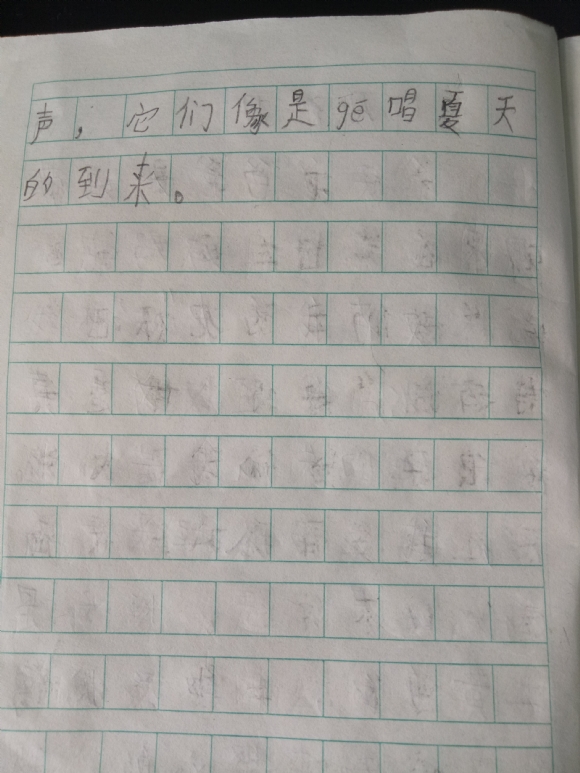 声，它们像是gē唱夏天
的到来。